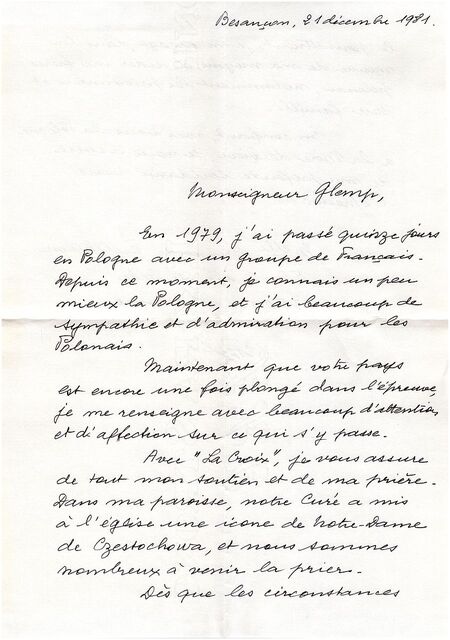 Besançon, 21 décembre 1981.
Monseigneur Glemp,
En 1979, j'ai passé quinze jours
en Pologne avec un groupe de Français.
Depuis ce moment, je connais un peu
mieux la Pologne, et j'ai beaucoup de
sympathie et d'admiration pour les
Polonais.
Maintenant que votre pays
est encore une fois plongé dans l'épreuve,
je me renseigne avec beaucoup d'attention
et d'affection sur ce qui s'y passe.
Avec "La Croix", je vous assure
de tout mon soutien et de ma prière.
Dans ma paroisse, notre Curé a mis
à l'église une icone de Notre-Dame
de Czestochowa, et nous sommes
nombreux à venir la prier.
Dès que les circonstances